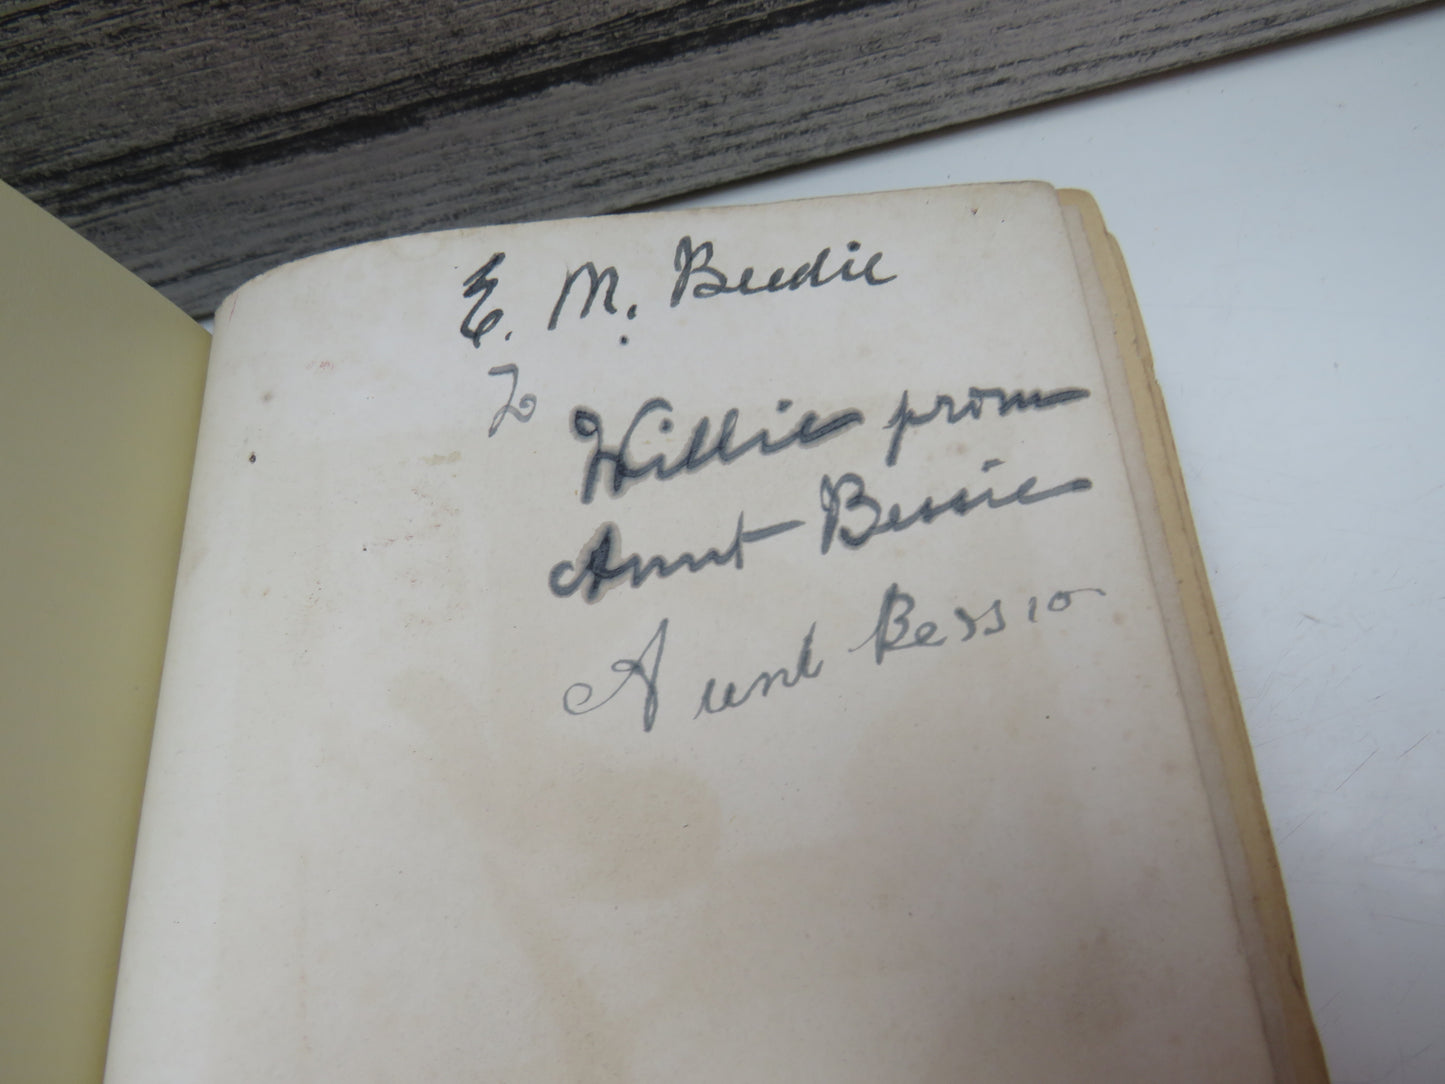 E. M. Beedie
To
Willie from
Aunt Bessie
Aunt Bessie